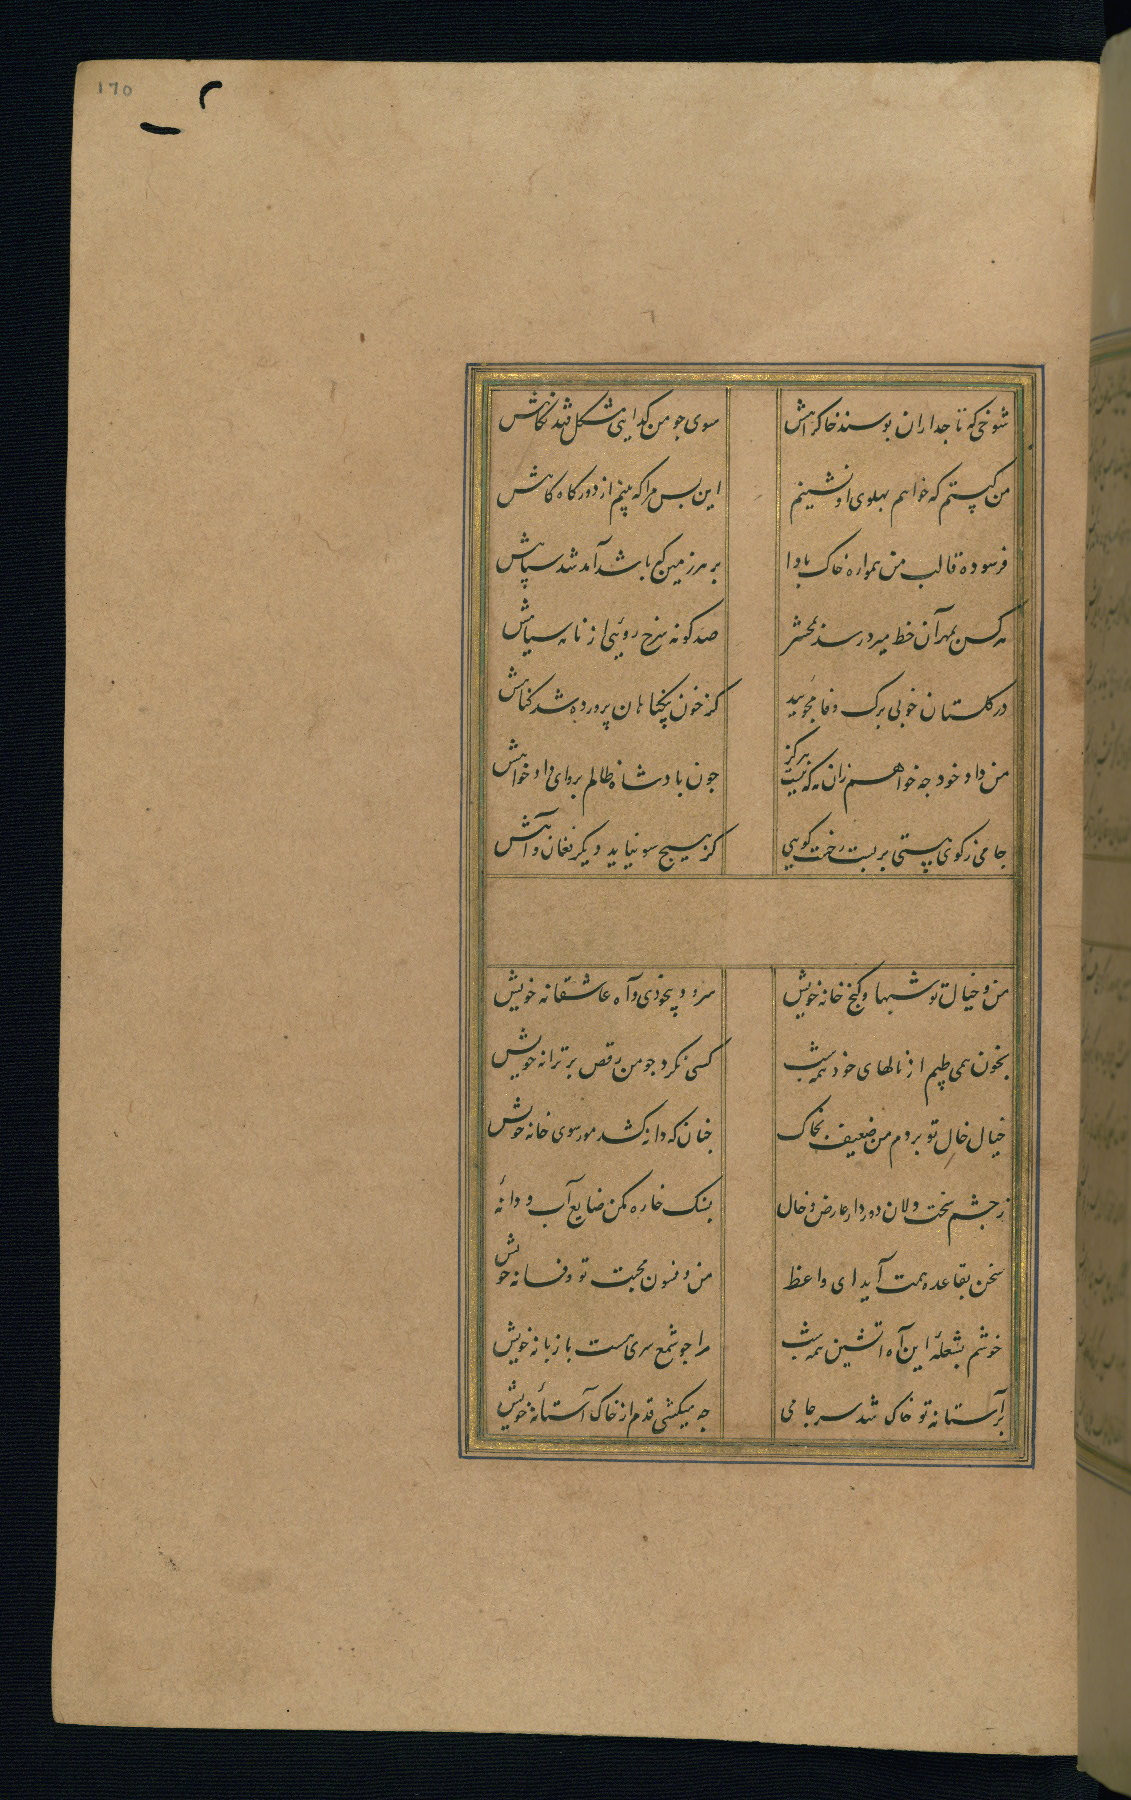 ۱۲۵
شوخی که تاجداران بوسند خاک راهش
سوی جو من کدایی مشکل فتد نکاهش
من کیستم که خواهم پهلوی او نشینم
این بس مرا که بینم از دور کاه کاهش
فرسوده قالب من همواره خاک بادا
بر هر زمین که باشد آمد شد سپاهش
هر کس بمهر آن خط میرد رسد بمحشر
صد کونه سرخ رویی از نامه سیاهش
در کلستان خوبی برک وفا مجویید
کز خون بیکناهان پرورده شد کیاهش
من داد خود جه خواهم زان مه که نیست هرکز
جون پادشاه ظالم پروای داد خواهش
جامی ز کوی هستی بربست رخت کویی
کز هیچ سو نیاید دیکر فغان و آهش
من و خیال تو شبها و کنج خانه خویش
سرود بیخودی و آه عاشقانه خویش
بخون همی طپم از نالهای خود همه شب
کسی نکرد جو من رقص بر ترانه خویش
خیال خال تو بردم من ضعیف بخاک
جنان که دانه کشد مور سوی خانه خویش
ز جشم سخت دلان دور دار عارض و خال
بسنک خاره مکن ضایع آب و دانه
سخن بقاعده همت آید ای واعظ
من و فسون محبت تو و فسانه خویش
خوشم بشعله این آه آتشین همه شب
مرا جو شمع سری هست با زبانه خویش
بر آستانه تو خاک شد سر جامی
جه میکشی قدم از خاک آستانه خویش